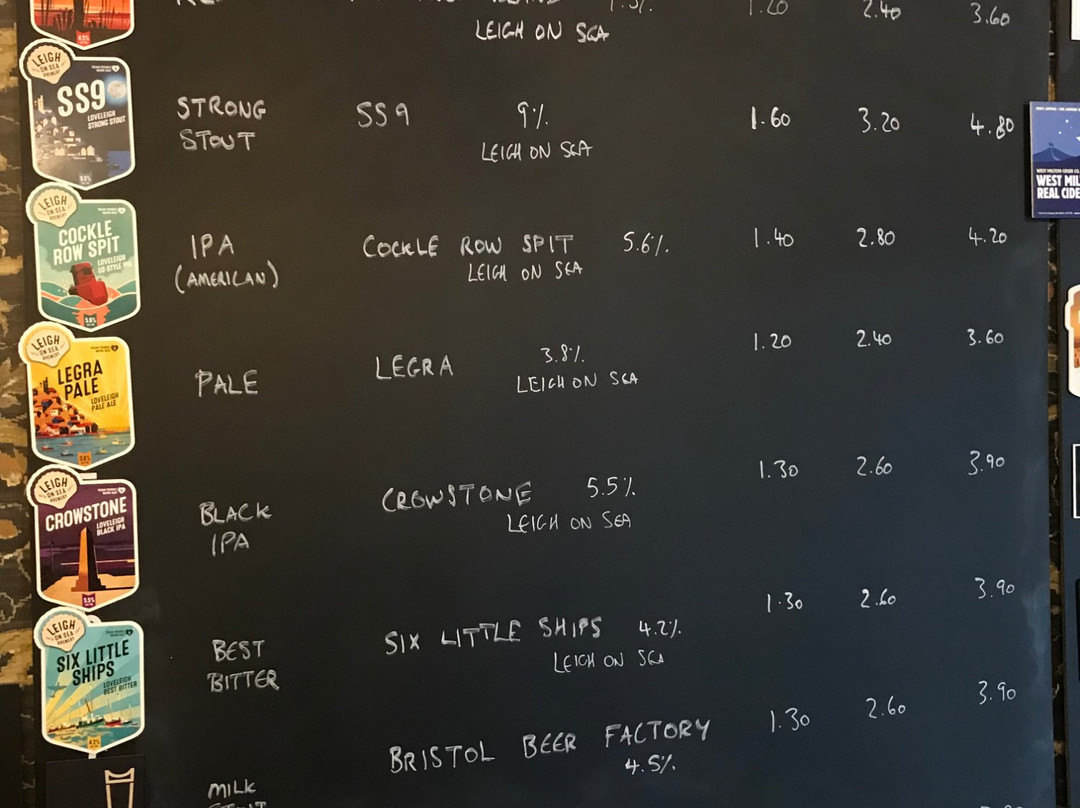 1.20 2.40 3.60
LEIGH ON SEA
LEIGH
ON SEA
BREWERY
SS9
LOVELEIGH
STRONG STOUT
STRONG
STOUT
SS9 9%
LEIGH ON SEA
1.60 3.20 4.80
WEST MIL
REAL CIDE
LEIGH
ON SEA
COCKLE
ROW SPIT
LOVELEIGH
US-STYLE IPA
IPA
(AMERICAN)
COCKLE ROW SPIT 5.6%
LEIGH ON SEA
1.40 2.80 4.20
LEIGH
ON SEA
LEGRA
PALE
LOVELEIGH
PALE ALE
PALE
LEGRA 3.8%
LEIGH ON SEA
1.20 2.40 3.60
LEIGH
ON SEA
BREWERY
CROWSTONE
LOVELEIGH
BLACK IPA
5.5%
BLACK
IPA
CROWSTONE 5.5%
LEIGH ON SEA
1.30 2.60 3.90
LEIGH
ON SEA
SIX LITTLE
SHIPS
LOVELEIGH
BEST BITTER
4.2%
BEST
BITTER
SIX LITTLE SHIPS 4.2%
LEIGH ON SEA
1.30 2.60 3.90
MILK
BRISTOL BEER FACTORY
4.5%
1.30 2.60 3.90